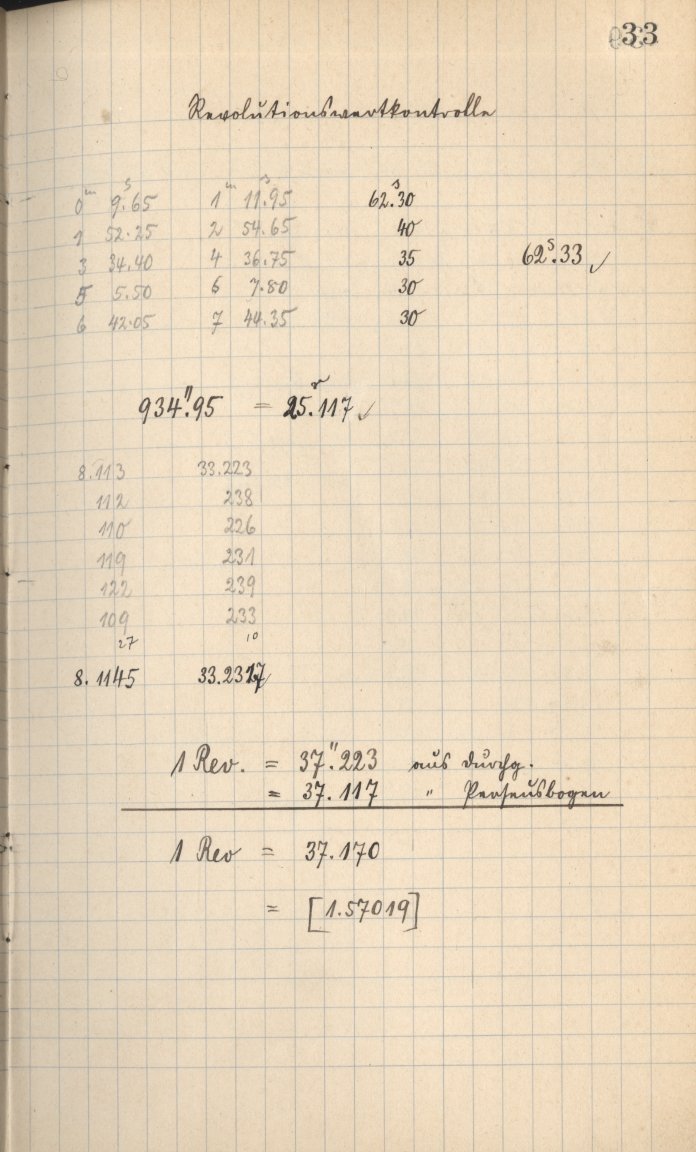 33
Revolutionswertkontrolle
0ᵐ 9ˢ.65 1ᵐ 11ˢ.95 62ˢ.30
1 52.25 2 54.65 40
3 34.40 4 36.75 35 62ˢ.33 ✓
5 5.50 6 7.80 30
6 42.05 7 44.35 30
934".95 = 25ʳ.117 ✓
8.113 33.223
112 238
110 226
119 231
122 239
109 233
27 10
8.1145 33.2317
1 Rev. = 37".223 aus Durchg.
= 37.117 " Perseusbogen
1 Rev = 37.170
= [1.57019]